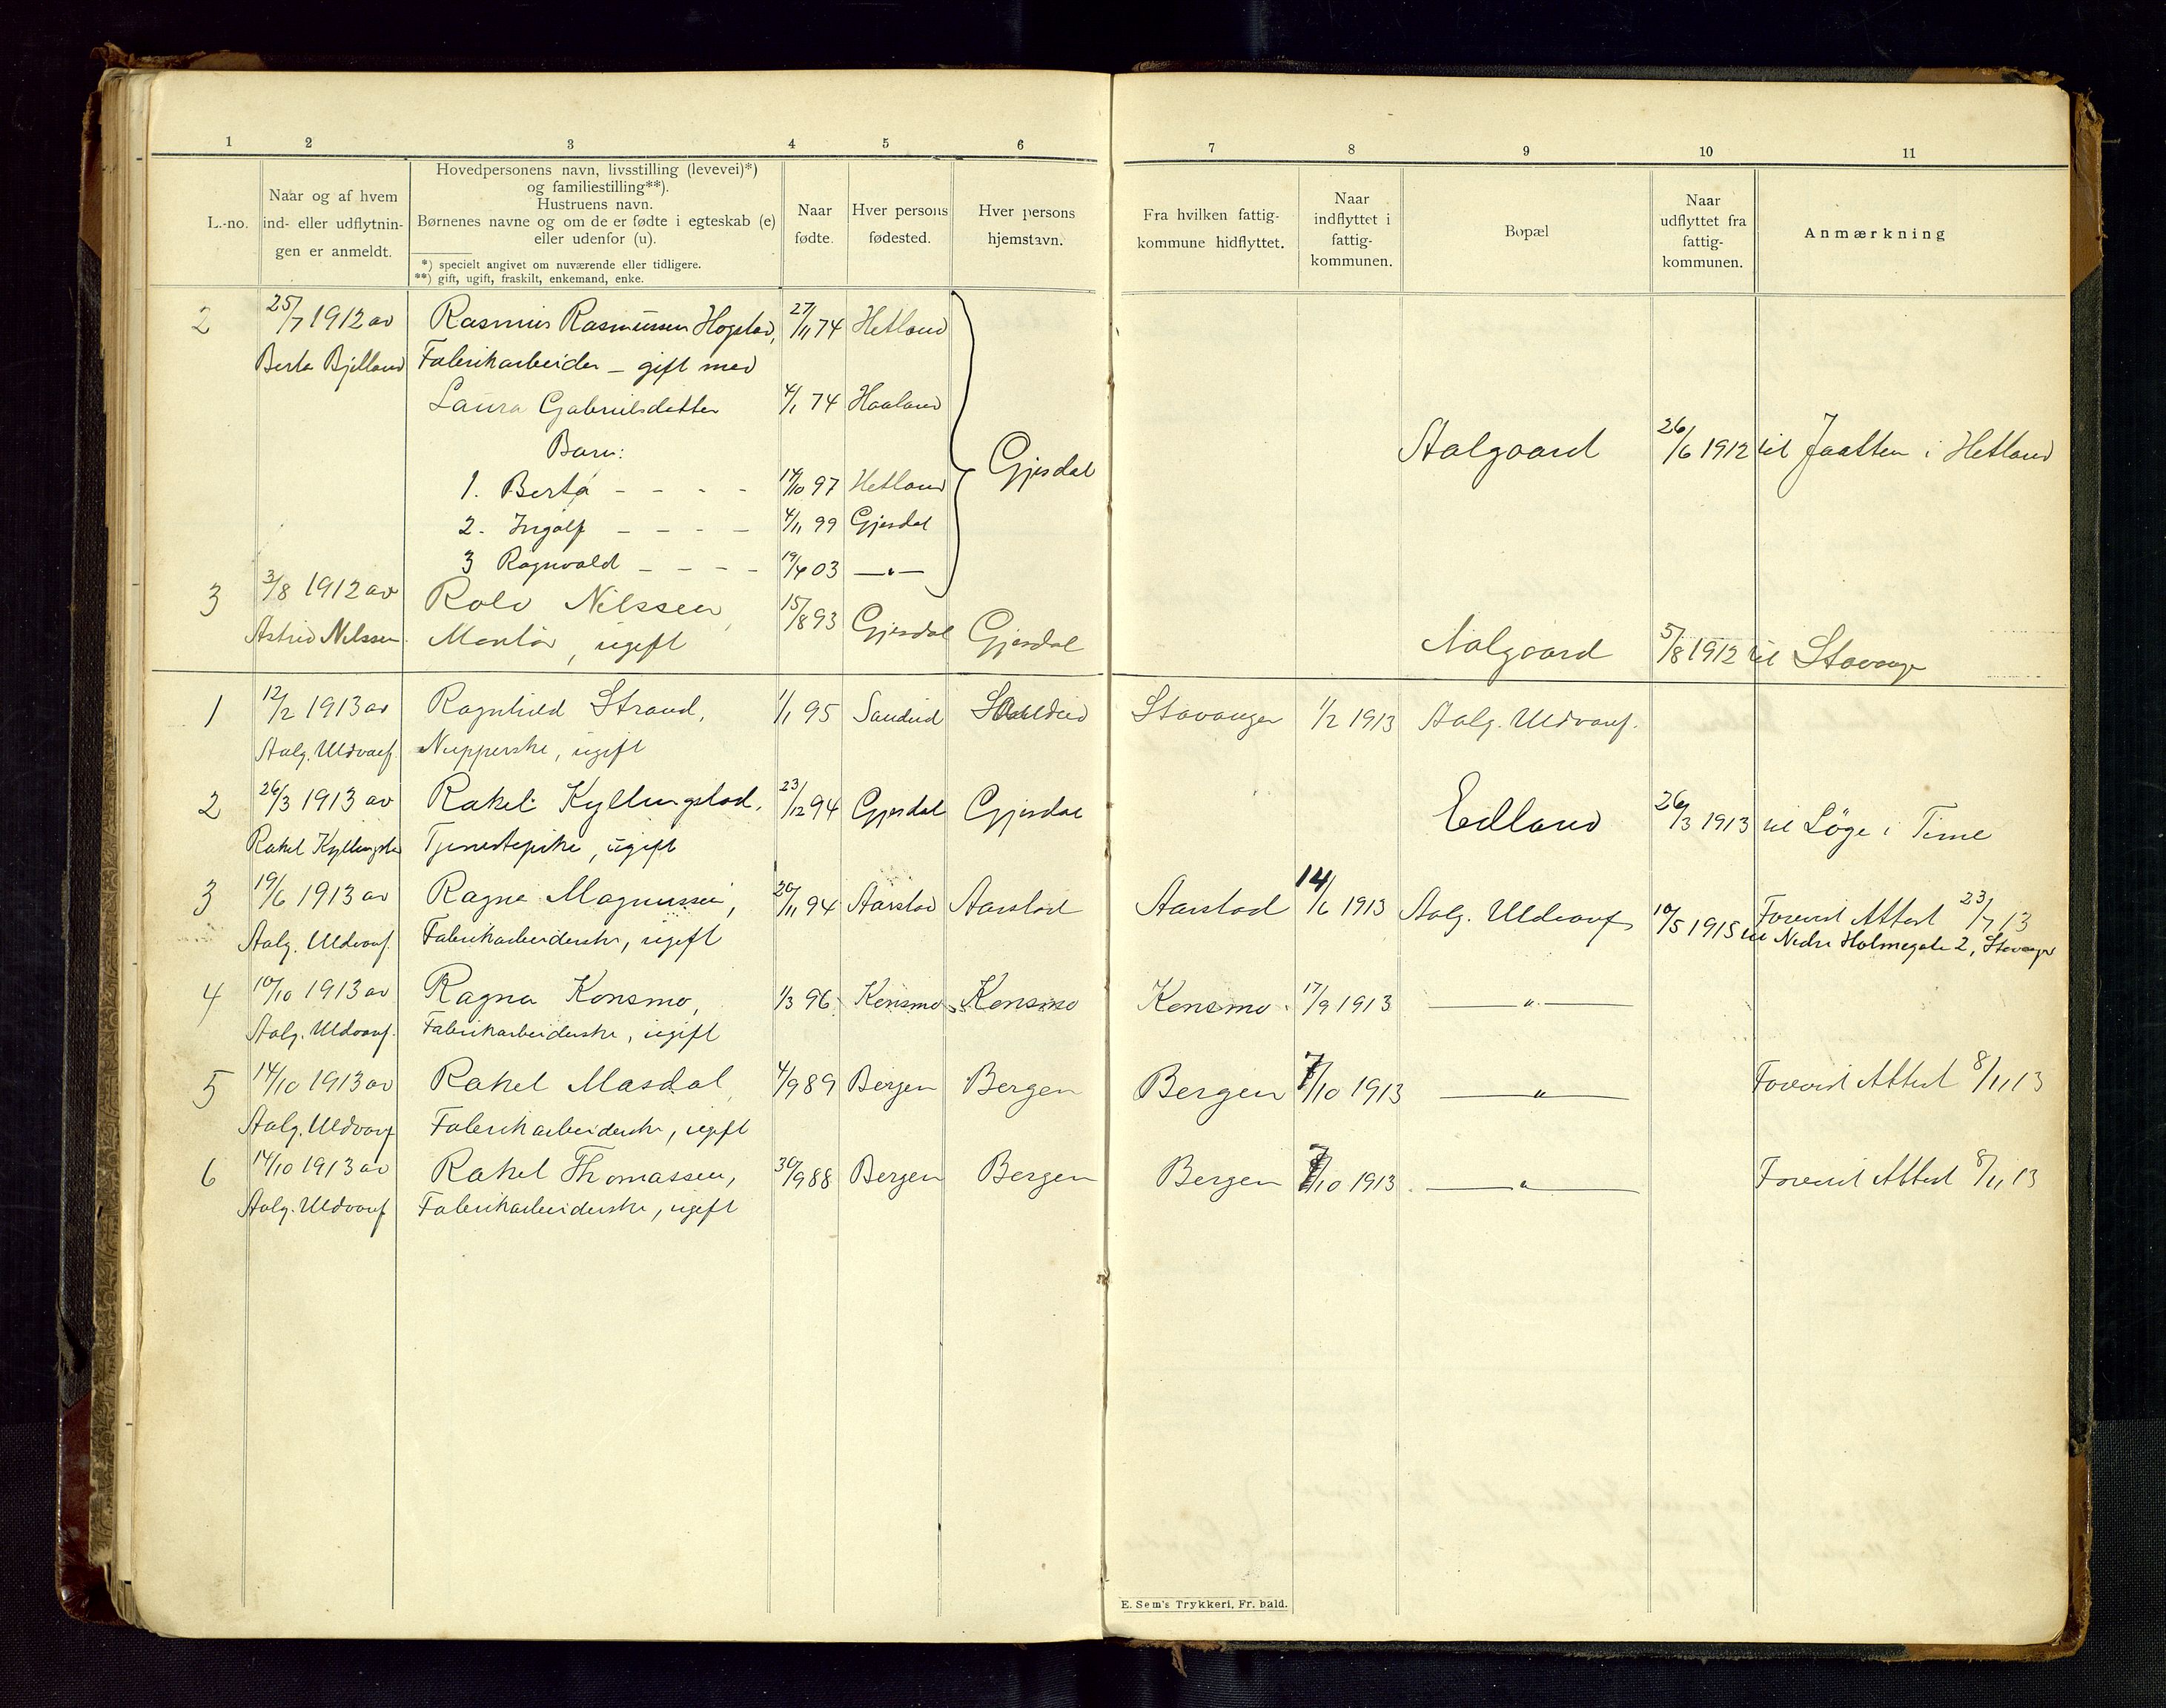 1 2 3 4 5 6 7 8 9 10 11
L.-no.
Naar og af hvem
ind- eller udflytnin-
gen er anmeldt.
Hovedpersonens navn, livsstilling (levevei)*)
og familiestilling**).
Hustruens navn.
Børnenes navne og om de er fødte i egteskab (e)
eller udenfor (u).
*) specielt angivet om nuværende eller tidligere.
**) gift, ugift, fraskilt, enkemand, enke.
Naar
fødte.
Hver persons
fødested.
Hver persons
hjemstavn.
Fra hvilken fattig-
kommune hidflyttet.
Naar
indflyttet i
fattig-
kommunen.
Bopæl
Naar
udflyttet fra
fattig-
kommunen.
Anmærkning
2 25/7 1912 av Rasmus Rasmussen Hogstad, 27/11 74 Hetland
Berta Bjelland Fabrikarbeider – gift med
Laura Gabrielsdatter 4/1 74 Haaland
Barn:
Gjesdal Aalgaard 26/6 1912 til Jaatten i Hetland
1. Berta - - - - 14/10 97 Hetland
2. Ingolf - - - - 4/11 99 Gjesdal
3 Ragnvald - - - - 19/4 03 —„—
3 3/8 1912 av Rolv Nilssen, 15/8 93 Gjesdal Gjesdal Aalgaard 5/8 1912 til Stavanger
Astrid Nilssen. Montør, ugift
1 12/2 1913 av Ragnhild Strand, 1/1 95 Sandeid Stavanger 1/2 1913 Aalg. Uldvarf.
Aalg. Uldvarf. Nupperske, ugift
2 26/3 1913 av Rakel Kyllingstad, 23/12 94 Gjesdal Gjesdal Edland 26/3 1913 til Løge i Time
Rakel Kyllingstad Tjenestepike, ugift
3 19/6 1913 av Ragna Magnussen, 20/11 94 Aarstad Aarstad Aarstad 14/6 1913 Aalg. Uldvarf 10/5 1915 Forevist Attest 23/7 13
Aalg. Uldvarf. Fabrikarbeiderske, ugift til Nedre Holmegate 2, Stavanger
4 10/10 1913 av Ragna Konsmo, 1/3 96. Konsmo Konsmo Konsmo. 17/9 1913 —„—
Aalg. Uldvarf. Fabrikarbeiderske, ugift
5 14/10 1913 av Rakel Masdal, 4/9 89 Bergen Bergen Bergen 7/10 1913 —„— Forevist Attest 8/11 13
Aalg. Uldvarf Fabrikarbeiderske, ugift
6 14/10 1913 av Rakel Thomassen, 30/9 88 Bergen Bergen Bergen 7/10 1913. —„— Forevist Attest 8/11 13
Aalg. Uldvarf Fabrikarbeiderske, ugift
E. Sem's Trykkeri, Fr. hald.